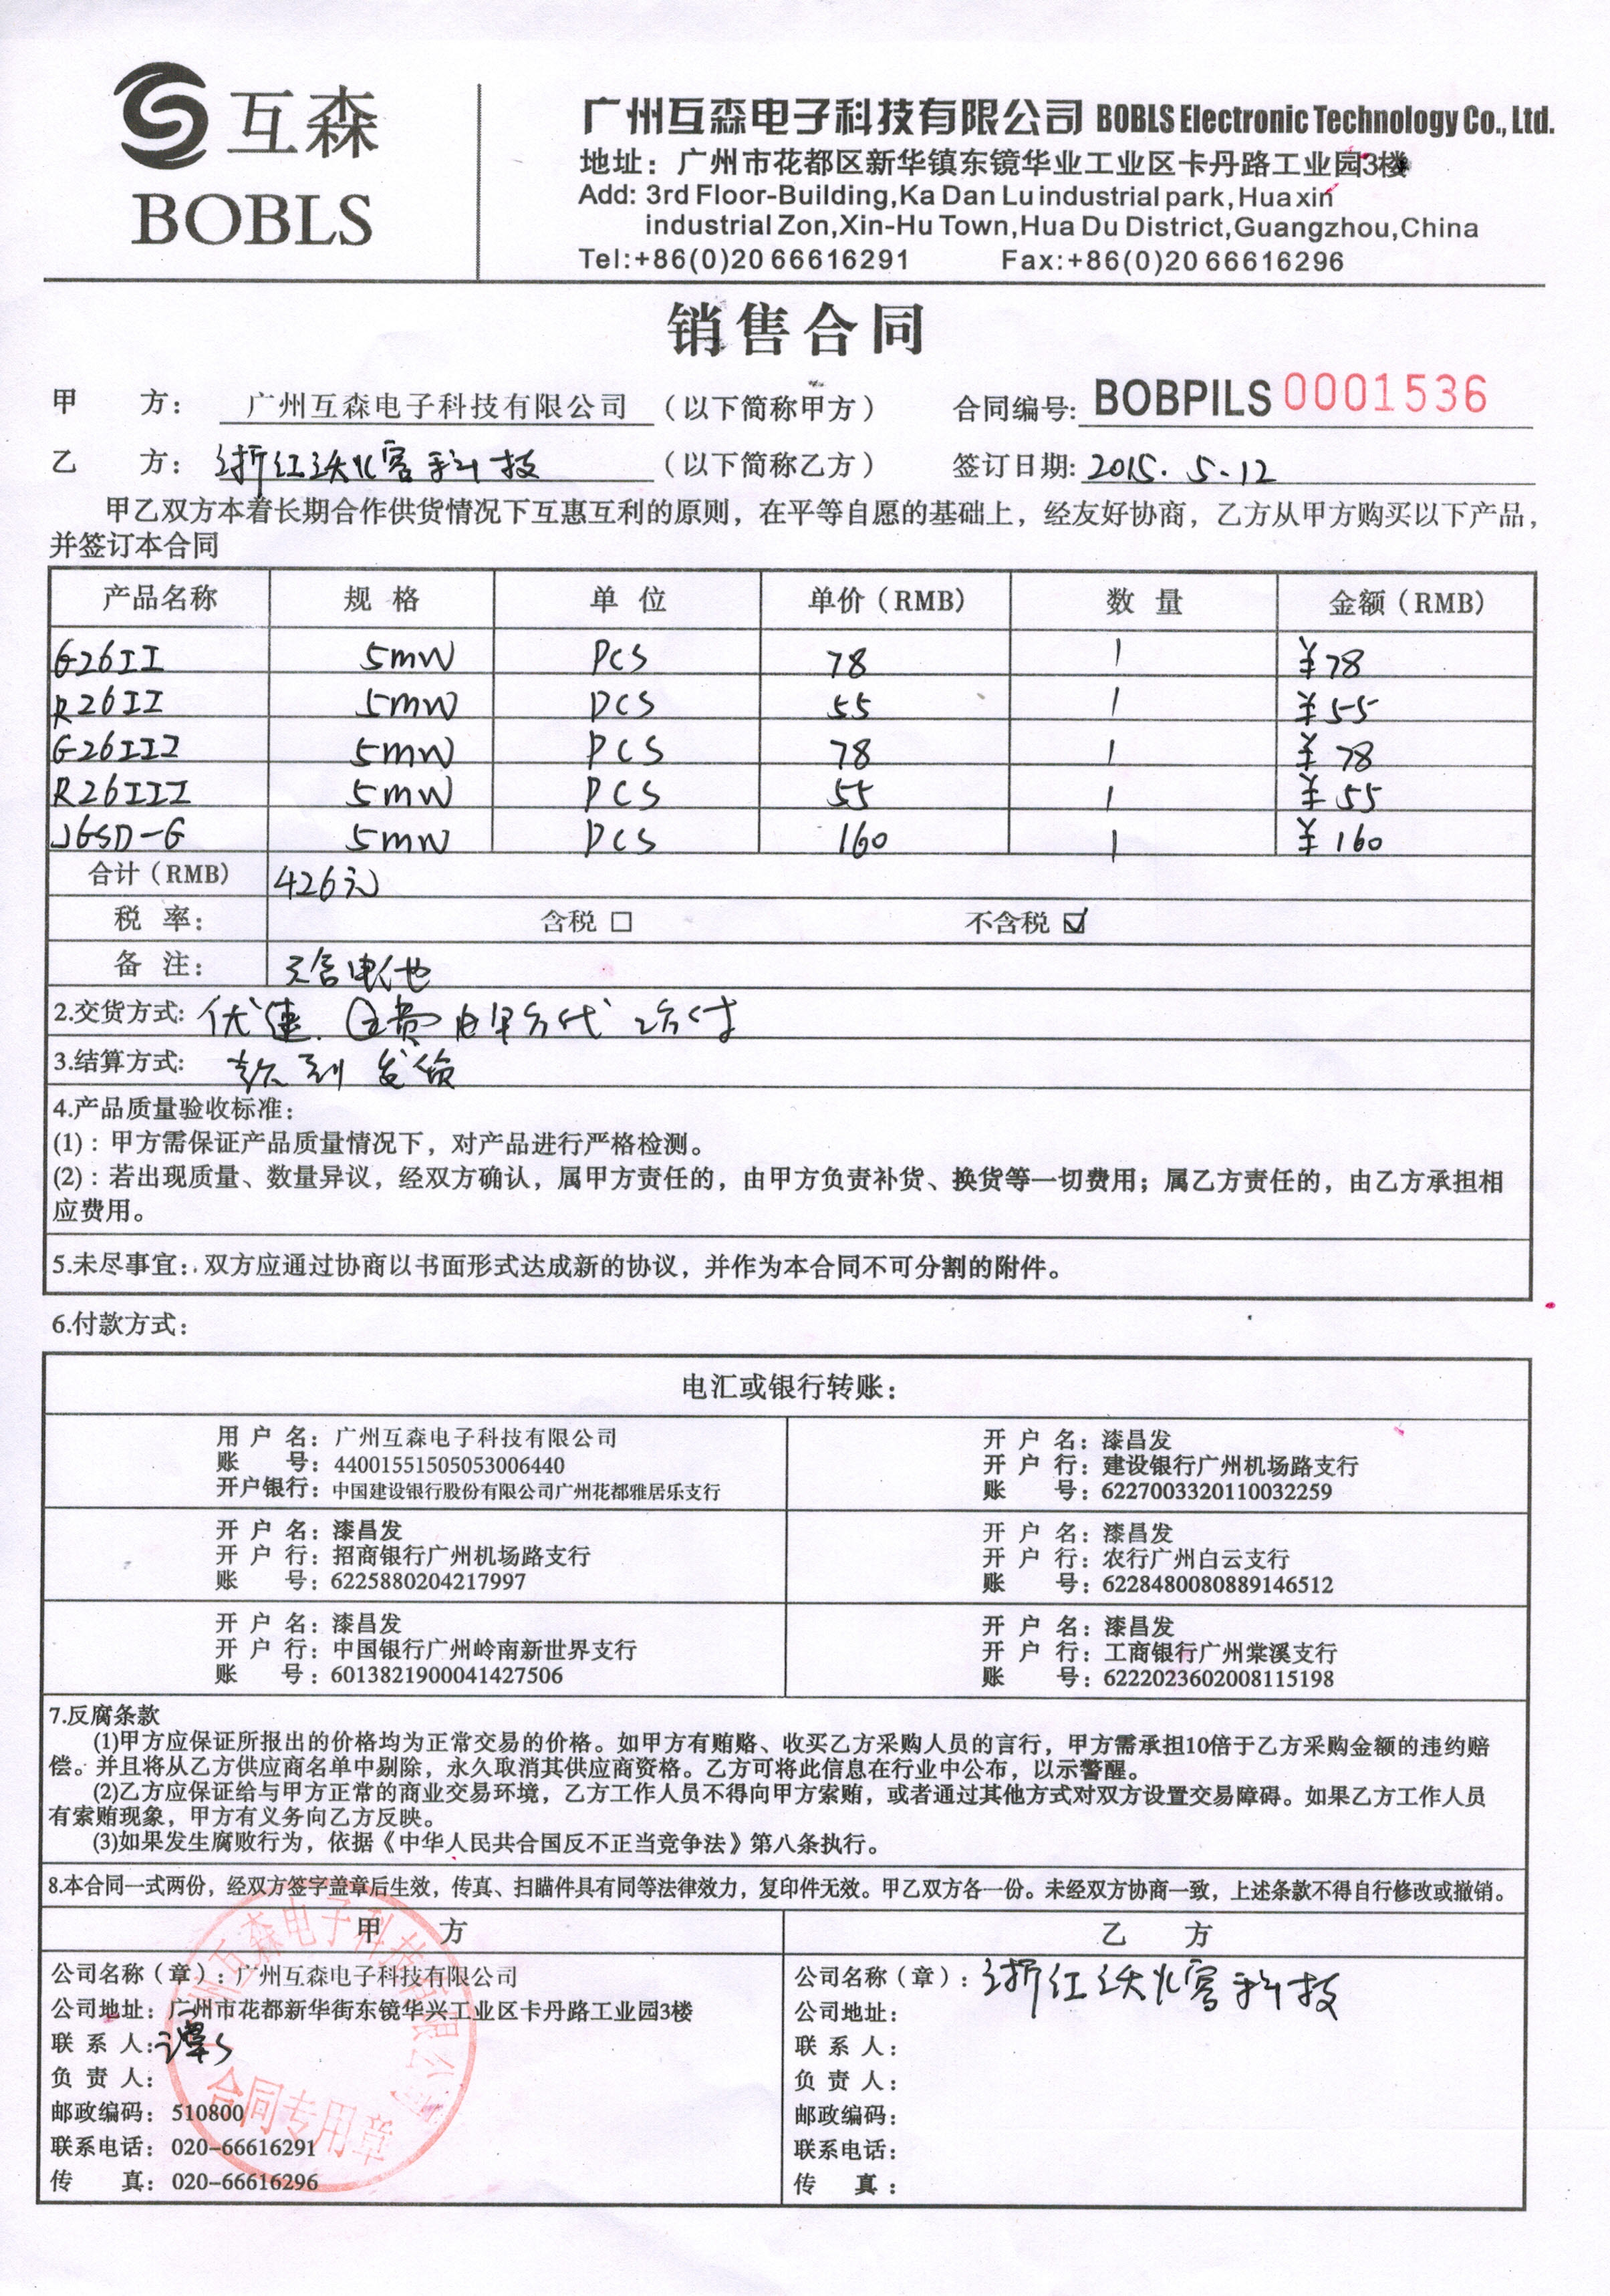 互森
BOBLS
广州互森电子科技有限公司 BOBLS Electronic Technology Co., Ltd.
地址：广州市花都区新华镇东镜华业工业区卡丹路工业园3楼
Add: 3rd Floor-Building,Ka Dan Lu industrial park,Hua xin
industrial Zon,Xin-Hu Town,Hua Du District,Guangzhou,China
Tel:+86(0)20 66616291 Fax:+86(0)20 66616296
销售合同
甲 方： 广州互森电子科技有限公司 （以下简称甲方） 合同编号: BOBPILS 0001536
乙 方： 浙江沃火客科技 （以下简称乙方） 签订日期: 2015. 5.12
甲乙双方本着长期合作供货情况下互惠互利的原则，在平等自愿的基础上，经友好协商，乙方从甲方购买以下产品，
并签订本合同
产品名称 规 格 单 位 单价（RMB） 数 量 金额（RMB）
G26II 5mW PCS 78 1 ¥78
R26II 5mW PCS 55 1 ¥55
G26III 5mW PCS 78 1 ¥78
R26III 5mW PCS 55 1 ¥55
JGSD-G 5mW PCS 160 1 ¥160
合计（RMB） 426元
税 率： 含税 □ 不含税 ☑
备 注： 电池
2.交货方式: 优速. 费由甲方代 付
3.结算方式: 款到发货
4.产品质量验收标准：
(1)：甲方需保证产品质量情况下，对产品进行严格检测。
(2)：若出现质量、数量异议，经双方确认，属甲方责任的，由甲方负责补货、换货等一切费用；属乙方责任的，由乙方承担相
应费用。
5.未尽事宜：双方应通过协商以书面形式达成新的协议，并作为本合同不可分割的附件。
6.付款方式：
电汇或银行转账：
用 户 名：广州互森电子科技有限公司
账 号：44001551505053006440
开户银行：中国建设银行股份有限公司广州花都雅居乐支行
开 户 名：漆昌发
开 户 行：建设银行广州机场路支行
账 号：6227003320110032259
开 户 名：漆昌发
开 户 行：招商银行广州机场路支行
账 号：6225880204217997
开 户 名：漆昌发
开 户 行：农行广州白云支行
账 号：6228480080889146512
开 户 名：漆昌发
开 户 行：中国银行广州岭南新世界支行
账 号：6013821900041427506
开 户 名：漆昌发
开 户 行：工商银行广州棠溪支行
账 号：6222023602008115198
7.反腐条款
(1)甲方应保证所报出的价格均为正常交易的价格。如甲方有贿赂、收买乙方采购人员的言行，甲方需承担10倍于乙方采购金额的违约赔
偿。并且将从乙方供应商名单中剔除，永久取消其供应商资格。乙方可将此信息在行业中公布，以示警醒。
(2)乙方应保证给与甲方正常的商业交易环境，乙方工作人员不得向甲方索贿，或者通过其他方式对双方设置交易障碍。如果乙方工作人员
有索贿现象，甲方有义务向乙方反映。
(3)如果发生腐败行为，依据《中华人民共合国反不正当竞争法》第八条执行。
8.本合同一式两份，经双方签字盖章后生效，传真、扫瞄件具有同等法律效力，复印件无效。甲乙双方各一份。未经双方协商一致，上述条款不得自行修改或撤销。
甲 方
公司名称（章）：广州互森电子科技有限公司
公司地址：广州市花都新华街东镜华兴工业区卡丹路工业园3楼
联 系 人：谭
负 责 人：
邮政编码：510800
联系电话：020-66616291
传 真：020-66616296
广州互森电子科技有限公司
合同专用章
乙 方
公司名称（章）：浙江沃火客科技
公司地址：
联 系 人：
负 责 人：
邮政编码：
联系电话：
传 真：